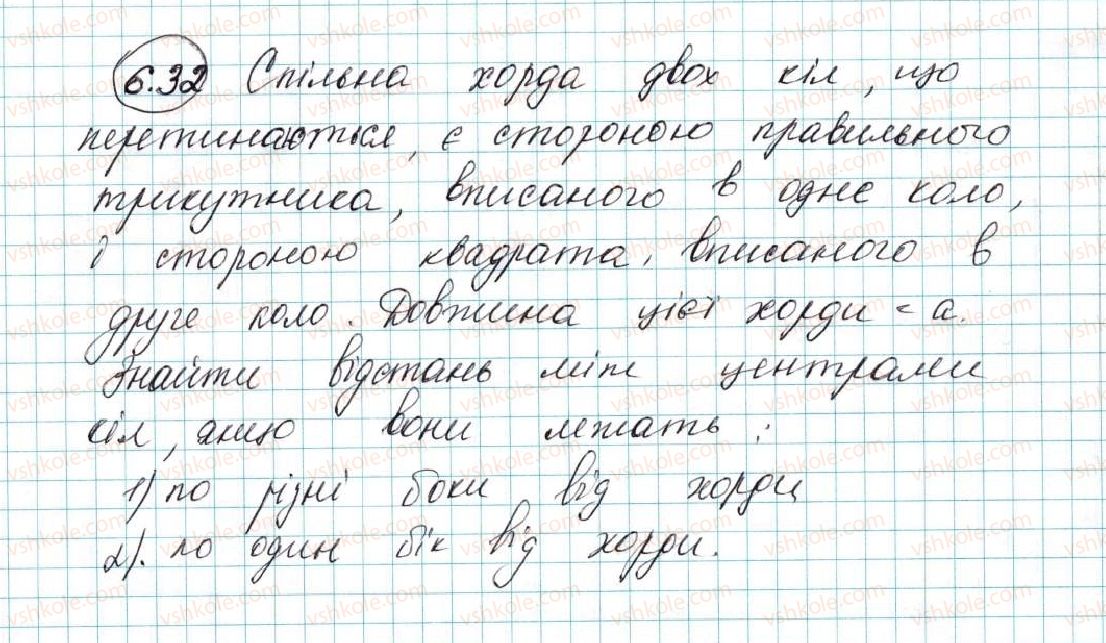 6.32 Спільна хорда двох кіл, що
перетинаються, є стороною правильного
трикутника, вписаного в одне коло,
і стороною квадрата, вписаного в
друге коло. Довжина цієї хорди = a.
Знайти відстань між центрами
кіл, якщо вони лежать:
1) по різні боки від хорди
2). по один бік від хорди.